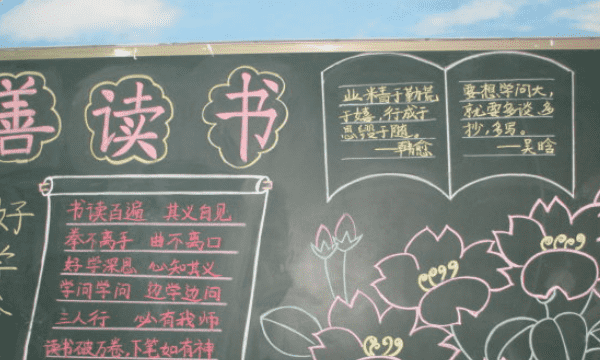 善读书
业精于勤荒
于嬉，行成于
思毁于随。
——韩愈
要想学问大，
就要多谈，多
抄，多写。
——吴晗
好
学
书读百遍 其义自见
拳不离手 曲不离口
好学深思 心知其义
学问学问 边学边问
三人行 必有我师
读书破万卷，下笔如有神